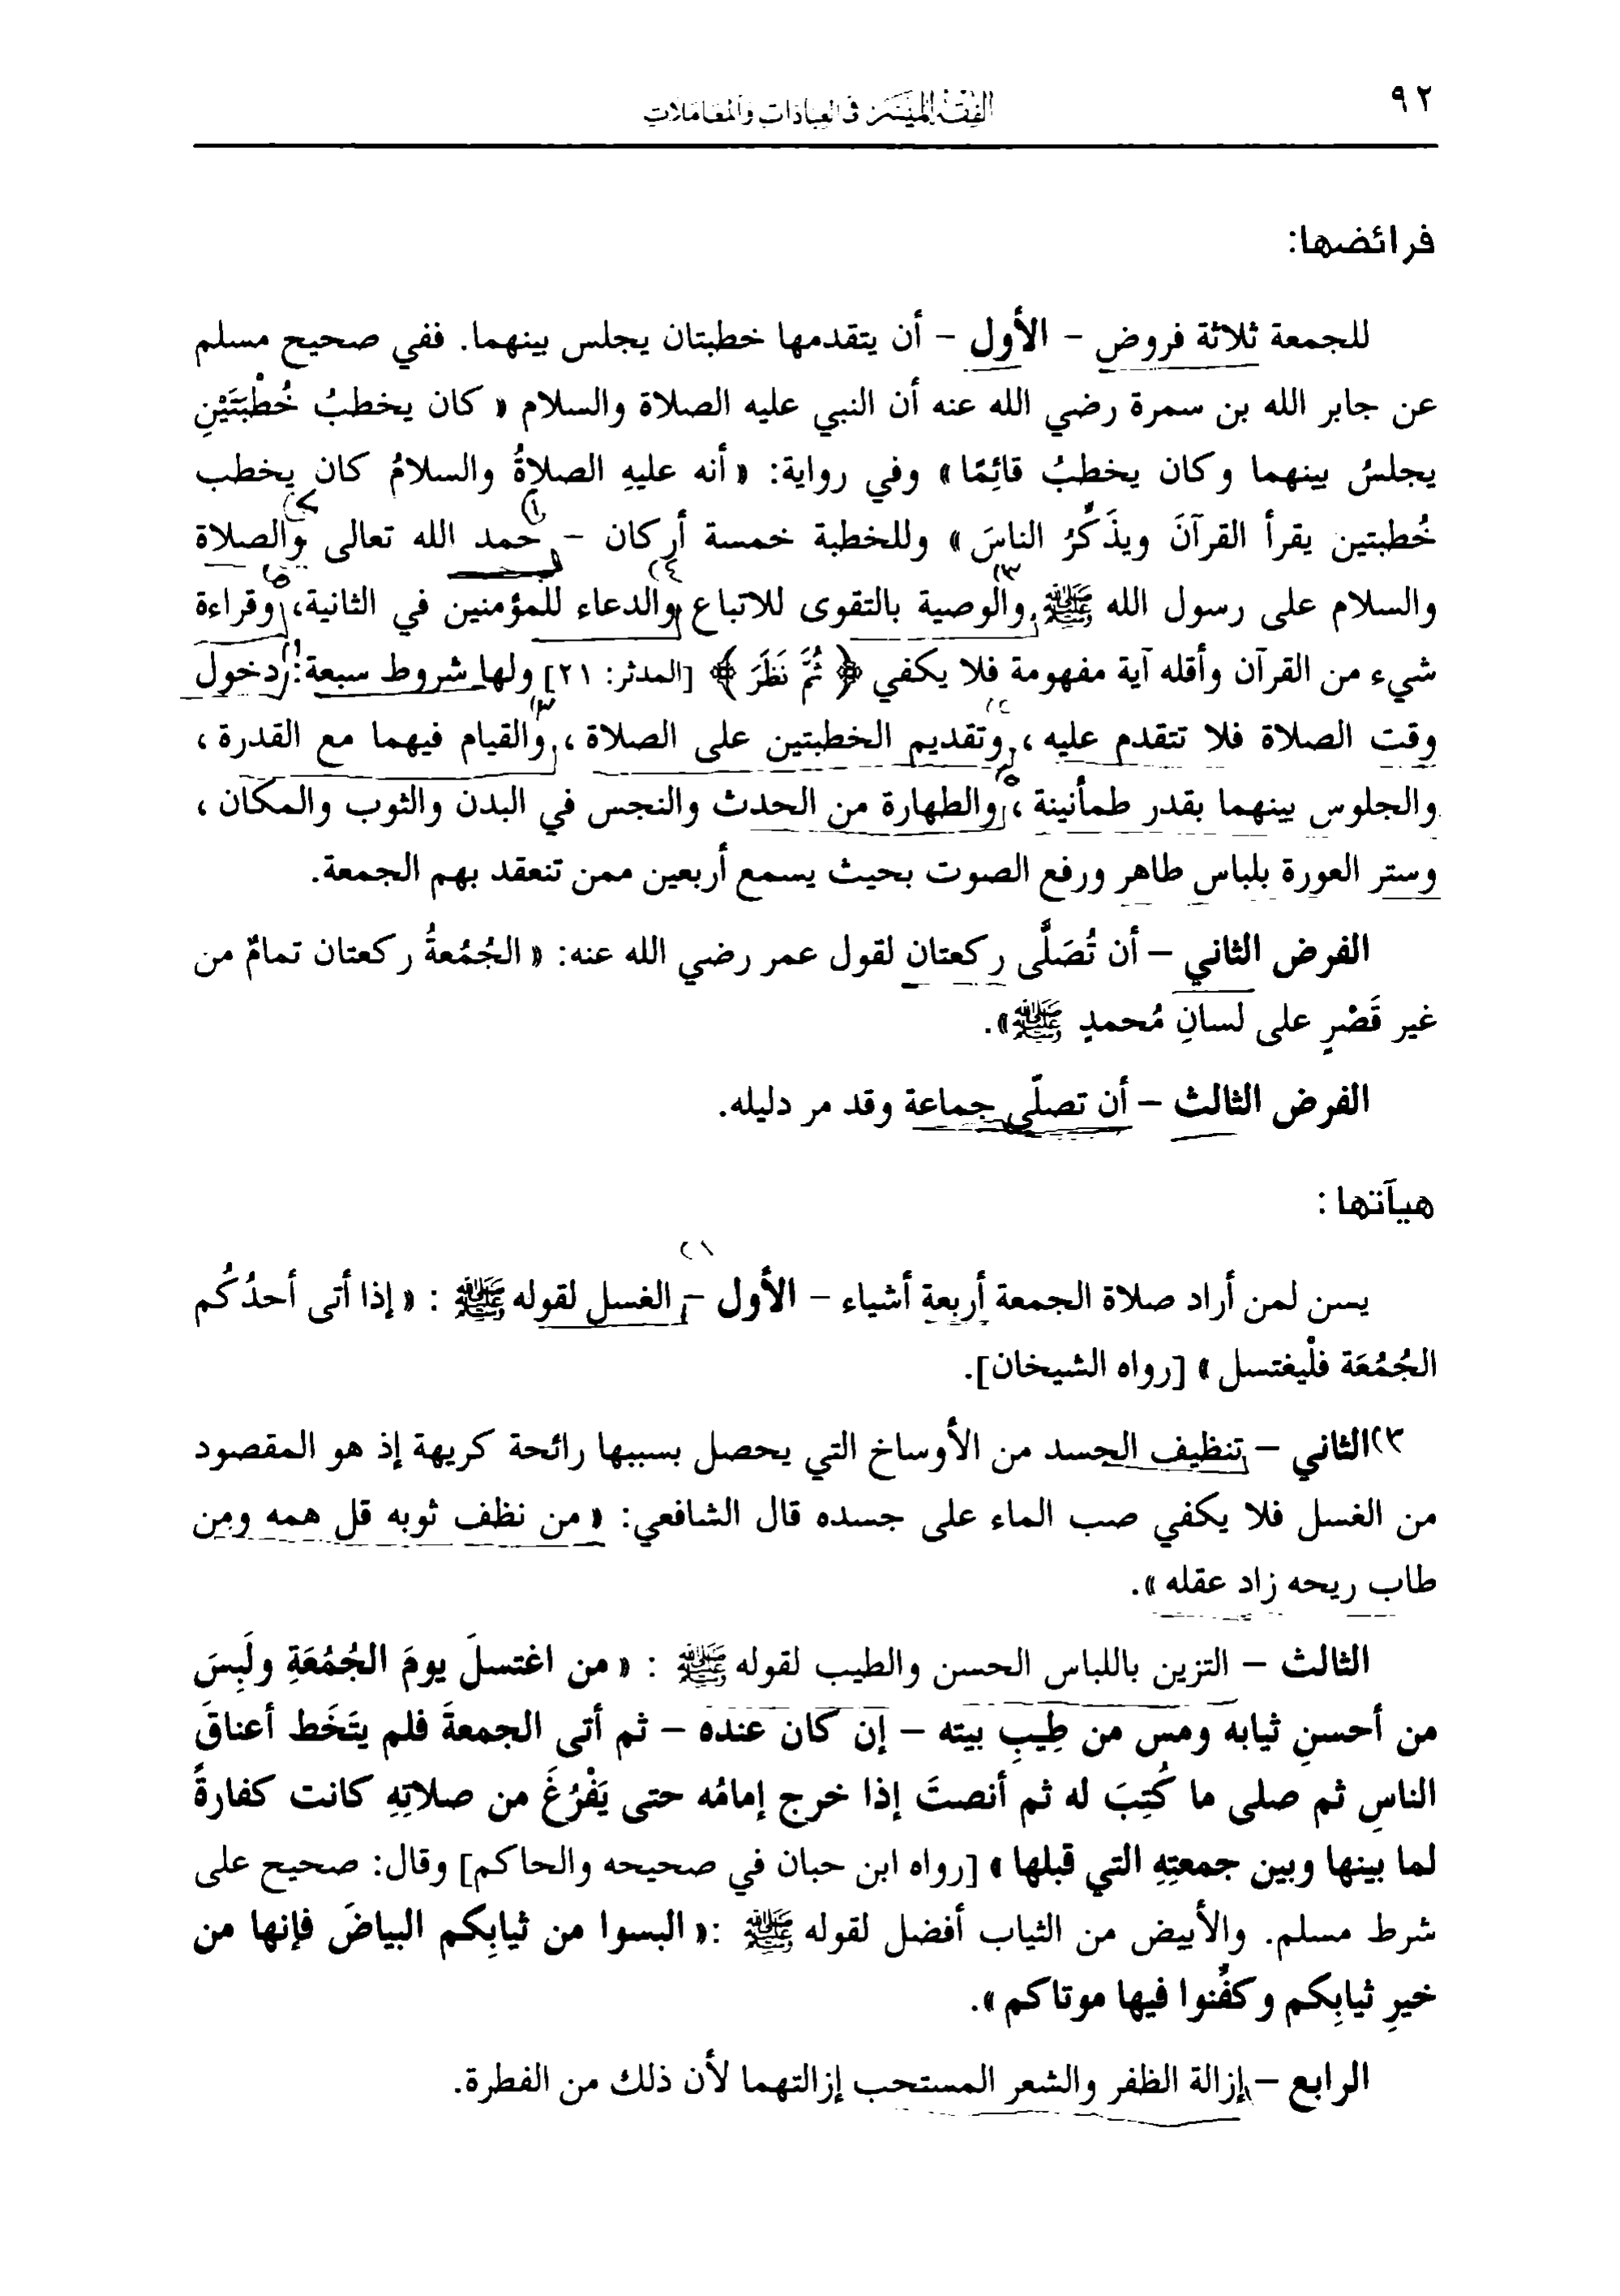 ٩٢
الفقه الميسر في العبادات والمعاملات
فرائضها:
للجمعة ثلاثة فروض - الأول - أن يتقدمها خطبتان يجلس بينهما. ففي صحيح مسلم
عن جابر الله بن سمرة رضي الله عنه أن النبي عليه الصلاة والسلام « كان يخطبُ خُطْبَتَيْنِ
يجلسُ بينهما وكان يخطبُ قائِمًا» وفي رواية: « أنه عليهِ الصلاةُ والسلامُ كان يخطب
خُطبتين يقرأ القرآنَ ويذَكِّرُ الناسَ » وللخطبة خمسة أركان - حمد الله تعالى والصلاة
والسلام على رسول الله ﷺ والوصية بالتقوى للاتباع والدعاء للمؤمنين في الثانية، وقراءة
شيء من القرآن وأقله آية مفهومة فلا يكفي ﴿ ثُمَّ نَظَرَ ﴾ [المدثر: ٢١] ولها شروط سبعة: دخول
وقت الصلاة فلا تتقدم عليه ، وتقديم الخطبتين على الصلاة ، والقيام فيهما مع القدرة ،
والجلوس بينهما بقدر طمأنينة ، والطهارة من الحدث والنجس في البدن والثوب والمكان ،
وستر العورة بلباس طاهر ورفع الصوت بحيث يسمع أربعين ممن تنعقد بهم الجمعة.
الفرض الثاني - أن تُصَلَّى ركعتان لقول عمر رضي الله عنه: « الجُمُعةُ ركعتان تمامٌ من
غير قَصْرٍ على لسانِ مُحمدٍ ﷺ».
الفرض الثالث - أن تصلّى جماعة وقد مر دليله.
هيآتها :
يسن لمن أراد صلاة الجمعة أربعة أشياء - الأول - الغسل لقوله ﷺ : « إذا أتى أحدُكُم
الجُمُعَة فلْيغتسل » [رواه الشيخان].
٢) الثاني - تنظيف الجسد من الأوساخ التي يحصل بسببها رائحة كريهة إذ هو المقصود
من الغسل فلا يكفي صب الماء على جسده قال الشافعي: « من نظف ثوبه قل همه ومن
طاب ريحه زاد عقله ».
الثالث - التزين باللباس الحسن والطيب لقوله ﷺ : « من اغتسلَ يومَ الجُمُعَةِ ولَبِسَ
من أحسنِ ثيابه ومس من طِيبِ بيته - إن كان عنده - ثم أتى الجمعةَ فلم يتَخَط أعناقَ
الناسِ ثم صلى ما كُتِبَ له ثم أنصتَ إذا خرج إمامُه حتى يَفْرُغَ من صلاتِهِ كانت كفارةً
لما بينها وبين جمعتِهِ التي قبلها » [رواه ابن حبان في صحيحه والحاكم] وقال: صحيح على
شرط مسلم. والأبيض من الثياب أفضل لقوله ﷺ :« البسوا من ثيابِكم البياضَ فإنها من
خيرِ ثيابِكم وكفِّنوا فيها موتاكم ».
الرابع - إزالة الظفر والشعر المستحب إزالتهما لأن ذلك من الفطرة.